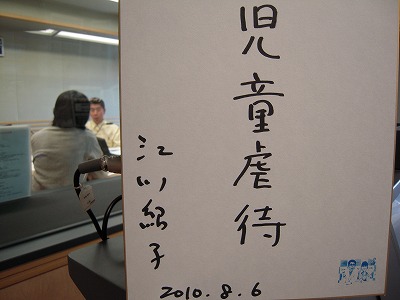 児童虐待
江川紹子
2010.8.6